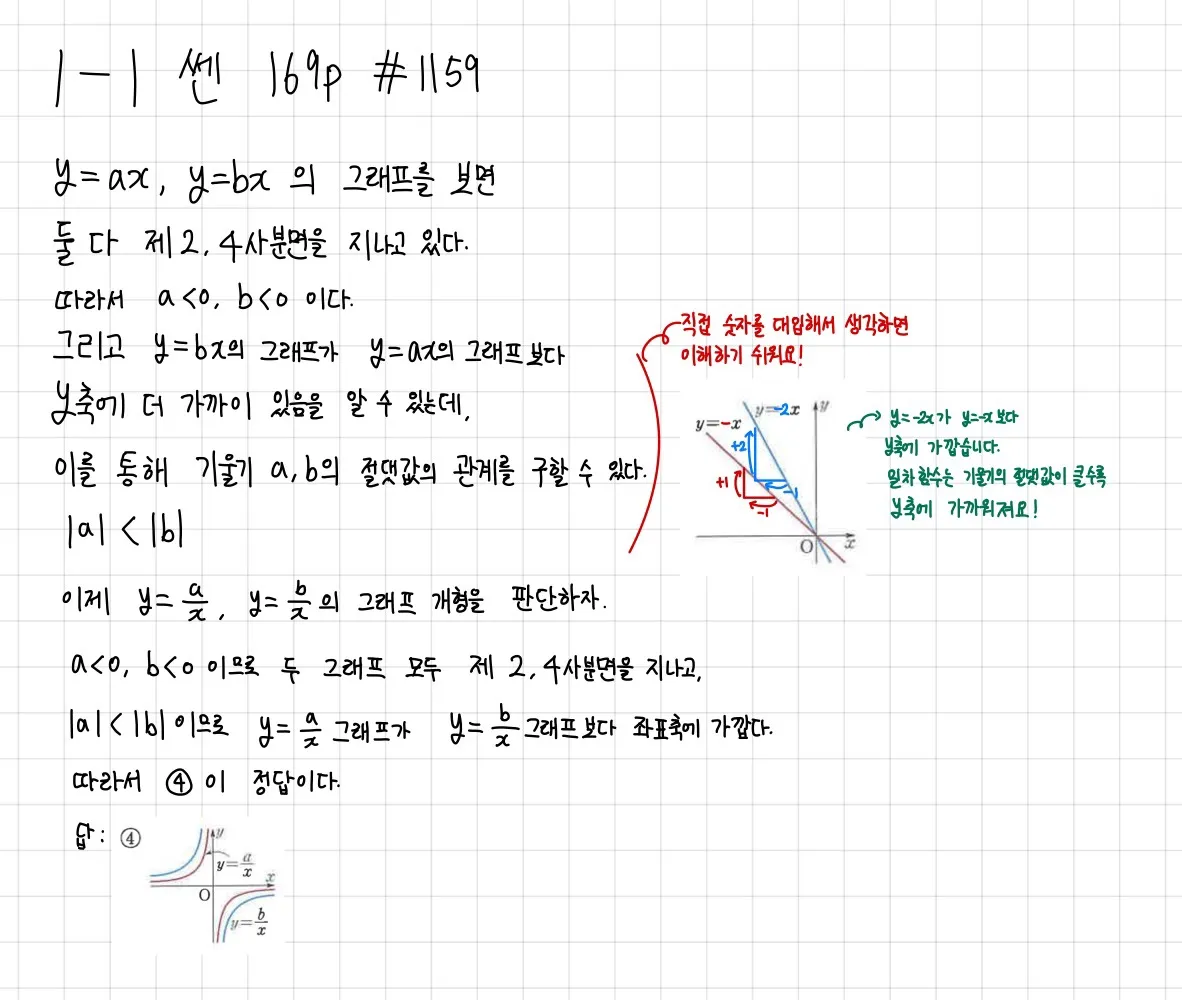 1-1 쎈 169p #1159
y=ax, y=bx 의 그래프를 보면
둘 다 제2, 4사분면을 지나고 있다.
따라서 a<0, b<0 이다.
그리고 y=bx의 그래프가 y=ax의 그래프보다
y축에 더 가까이 있음을 알 수 있는데,
이를 통해 기울기 a,b의 절댓값의 관계를 구할 수 있다.
|a| < |b|
직접 숫자를 대입해서 생각하면
이해하기 쉬워요!
y=-2x
y
y=-x
+2
-1
+1
-1
O
x
y=-2x가 y=-x보다
y축에 가깝습니다.
일차함수는 기울기의 절댓값이 클수록
y축에 가까워져요!
이제 y=a/x, y=b/x의 그래프 개형을 판단하자.
a<0, b<0 이므로 두 그래프 모두 제 2, 4사분면을 지나고,
|a| < |b| 이므로 y=a/x 그래프가 y=b/x 그래프보다 좌표축에 가깝다.
따라서 ④ 이 정답이다.
답: ④
y
y=a/x
x
O
y=b/x